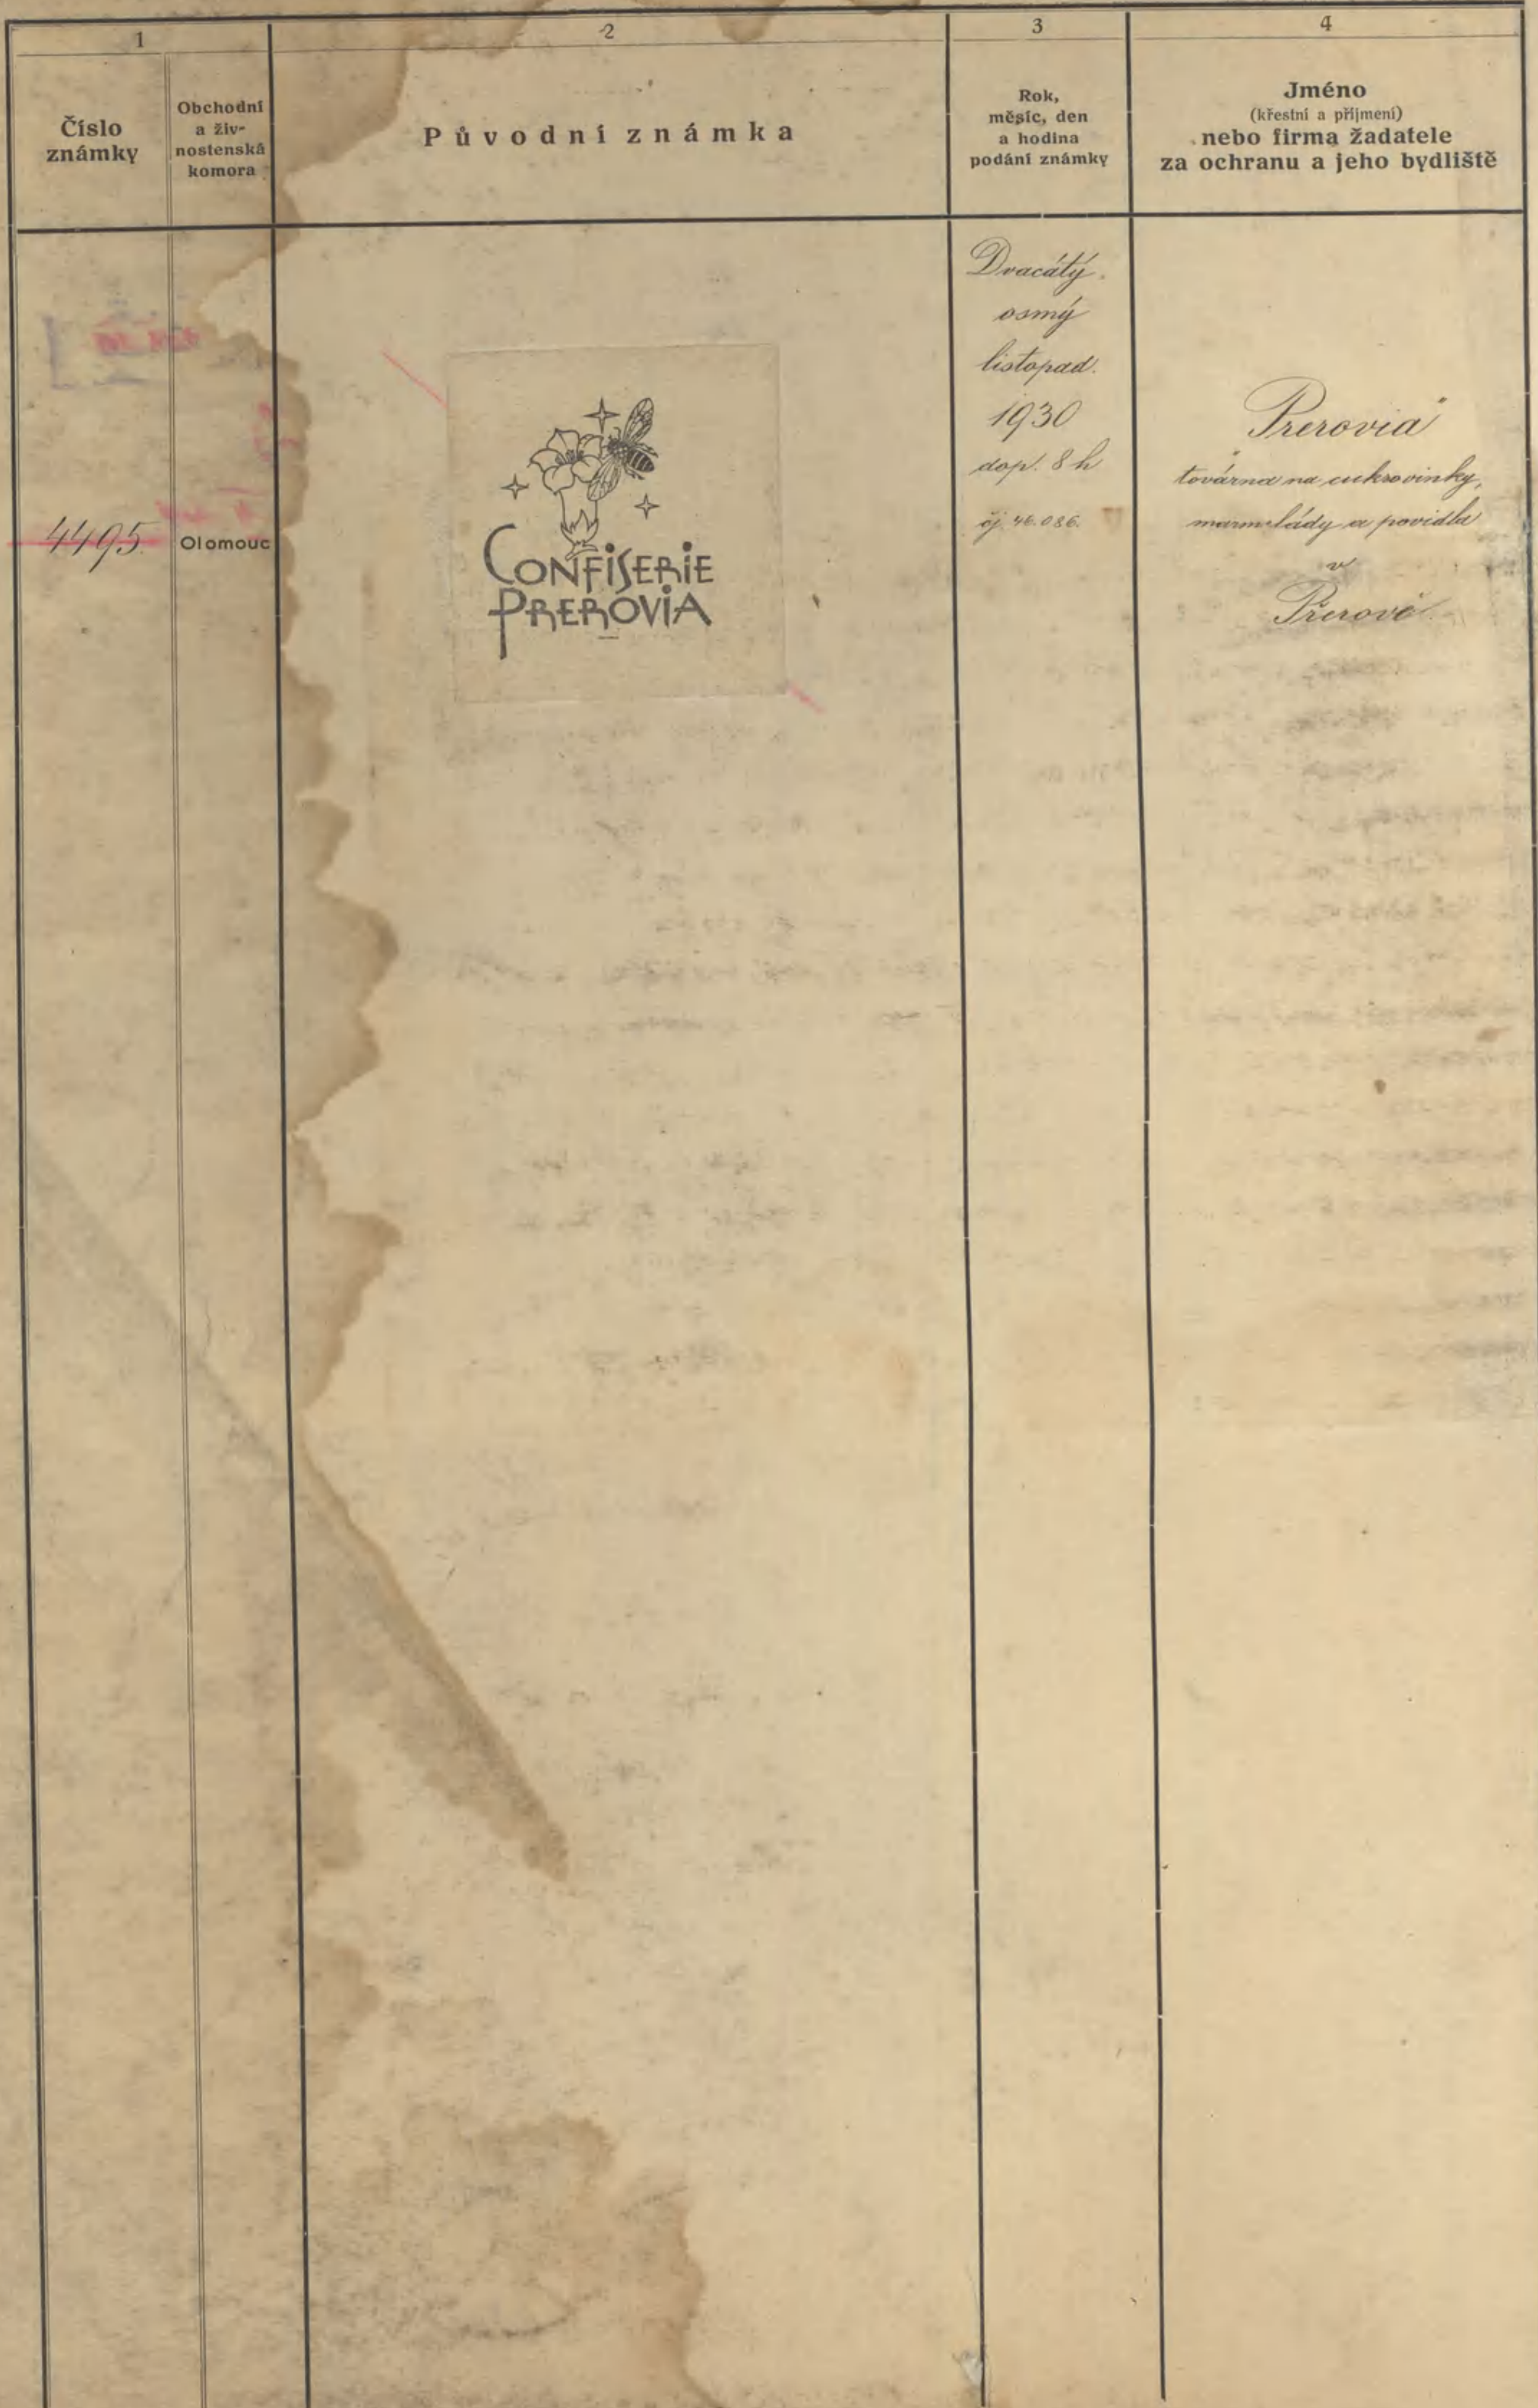 1
2
3
4
Číslo
známky
Obchodní
a živ-
nostenská
komora
Původní známka
Rok,
měsíc, den
a hodina
podání známky
Jméno
(křestní a příjmení)
nebo firma žadatele
za ochranu a jeho bydliště
4495.
Olomouc
CONFISERIE
PREROVIA
Dvacátý
osmý
listopad.
1930
dop. 8 h
čj. 46.086.
„Prerovia“
továrna na cukrovinky,
marmelády a povidla
v
Přerově.